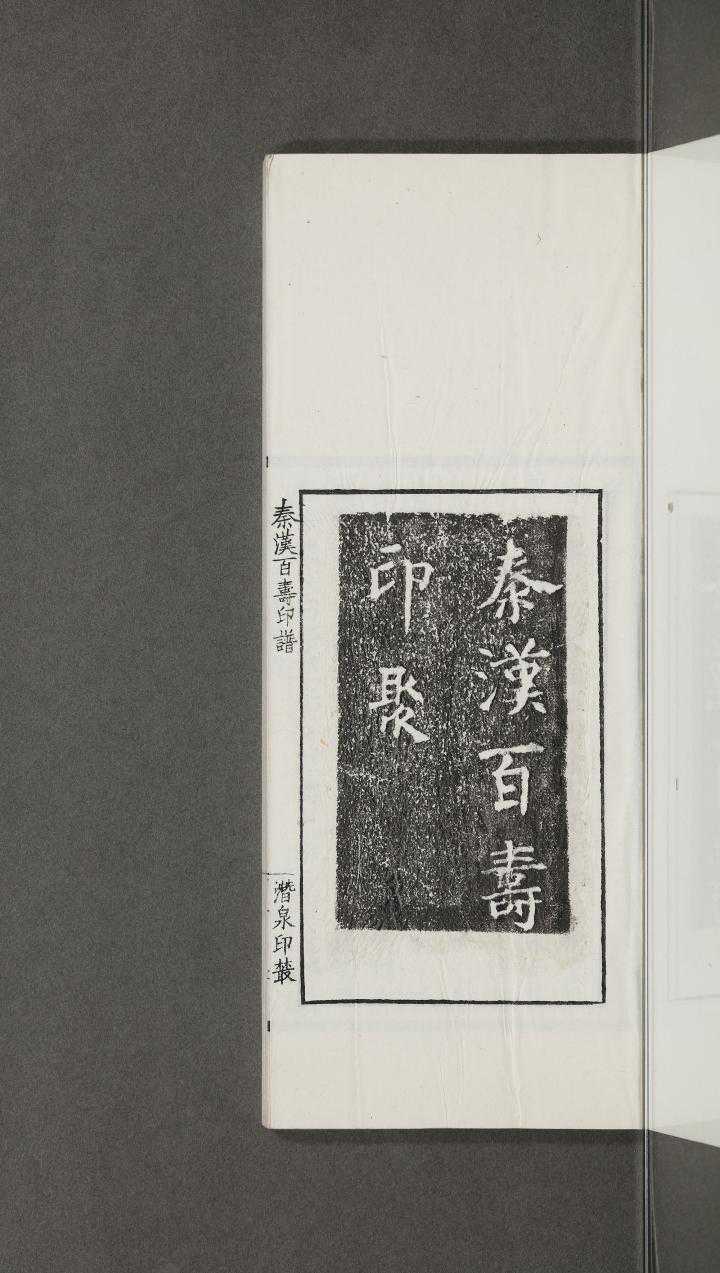 秦漢百壽
印聚
秦漢百壽印譜
潛泉印叢